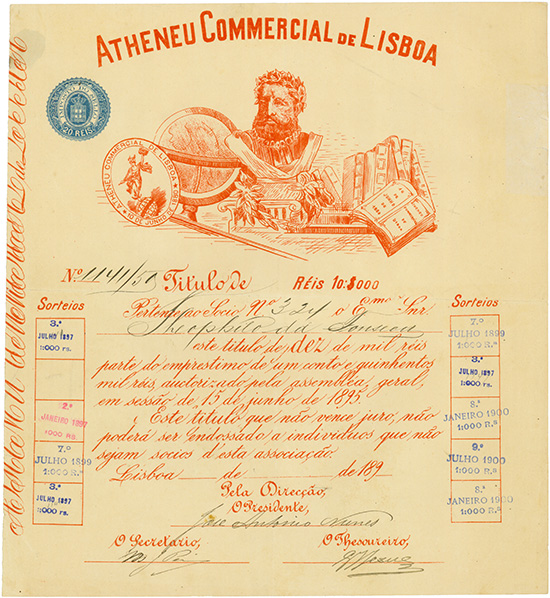 ATHENEU COMMERCIAL DE LISBOA
IMPOSTO DO SELLO
20 REIS
ATHENEU COMMERCIAL DE LISBOA
10 JUNHO DE 1880
Nº 1141/50 Titulo de RÉIS 10:$000
Pertence ao Socio Nº 324 o Emº Snr.
Theophilo da Fonseca
este titulo de dez de mil réis
parte do emprestimo de um conto e quinhentos
mil réis, auctorizado pela assembléa geral,
em sessão de 15 de junho de 1895.
Este titulo que não vence juro, não
poderá ser endossado a individuos que não
sejam socios d'esta associação.
Lisboa de de 189
Pela Direcção,
O Presidente,
José António Nunes
O Secretario,
O Thesoureiro,
Sorteios
3.ª
JULHO 1897
1:000 rs.
2.ª
JANEIRO 1897
1:000 RS.
7.º
JULHO 1899
1:000 R.ˢ
3.ª
JULHO 1897
1:000 rs.
Sorteios
7.º
JULHO 1899
1:000 R.ˢ
3.ª
JULHO 1897
1:000 rs.
8.ª
JANEIRO 1900
1:000 R.ˢ
9.º
JULHO 1900
1:000 R.ˢ
8.ª
JANEIRO 1900
1:000 R.ˢ